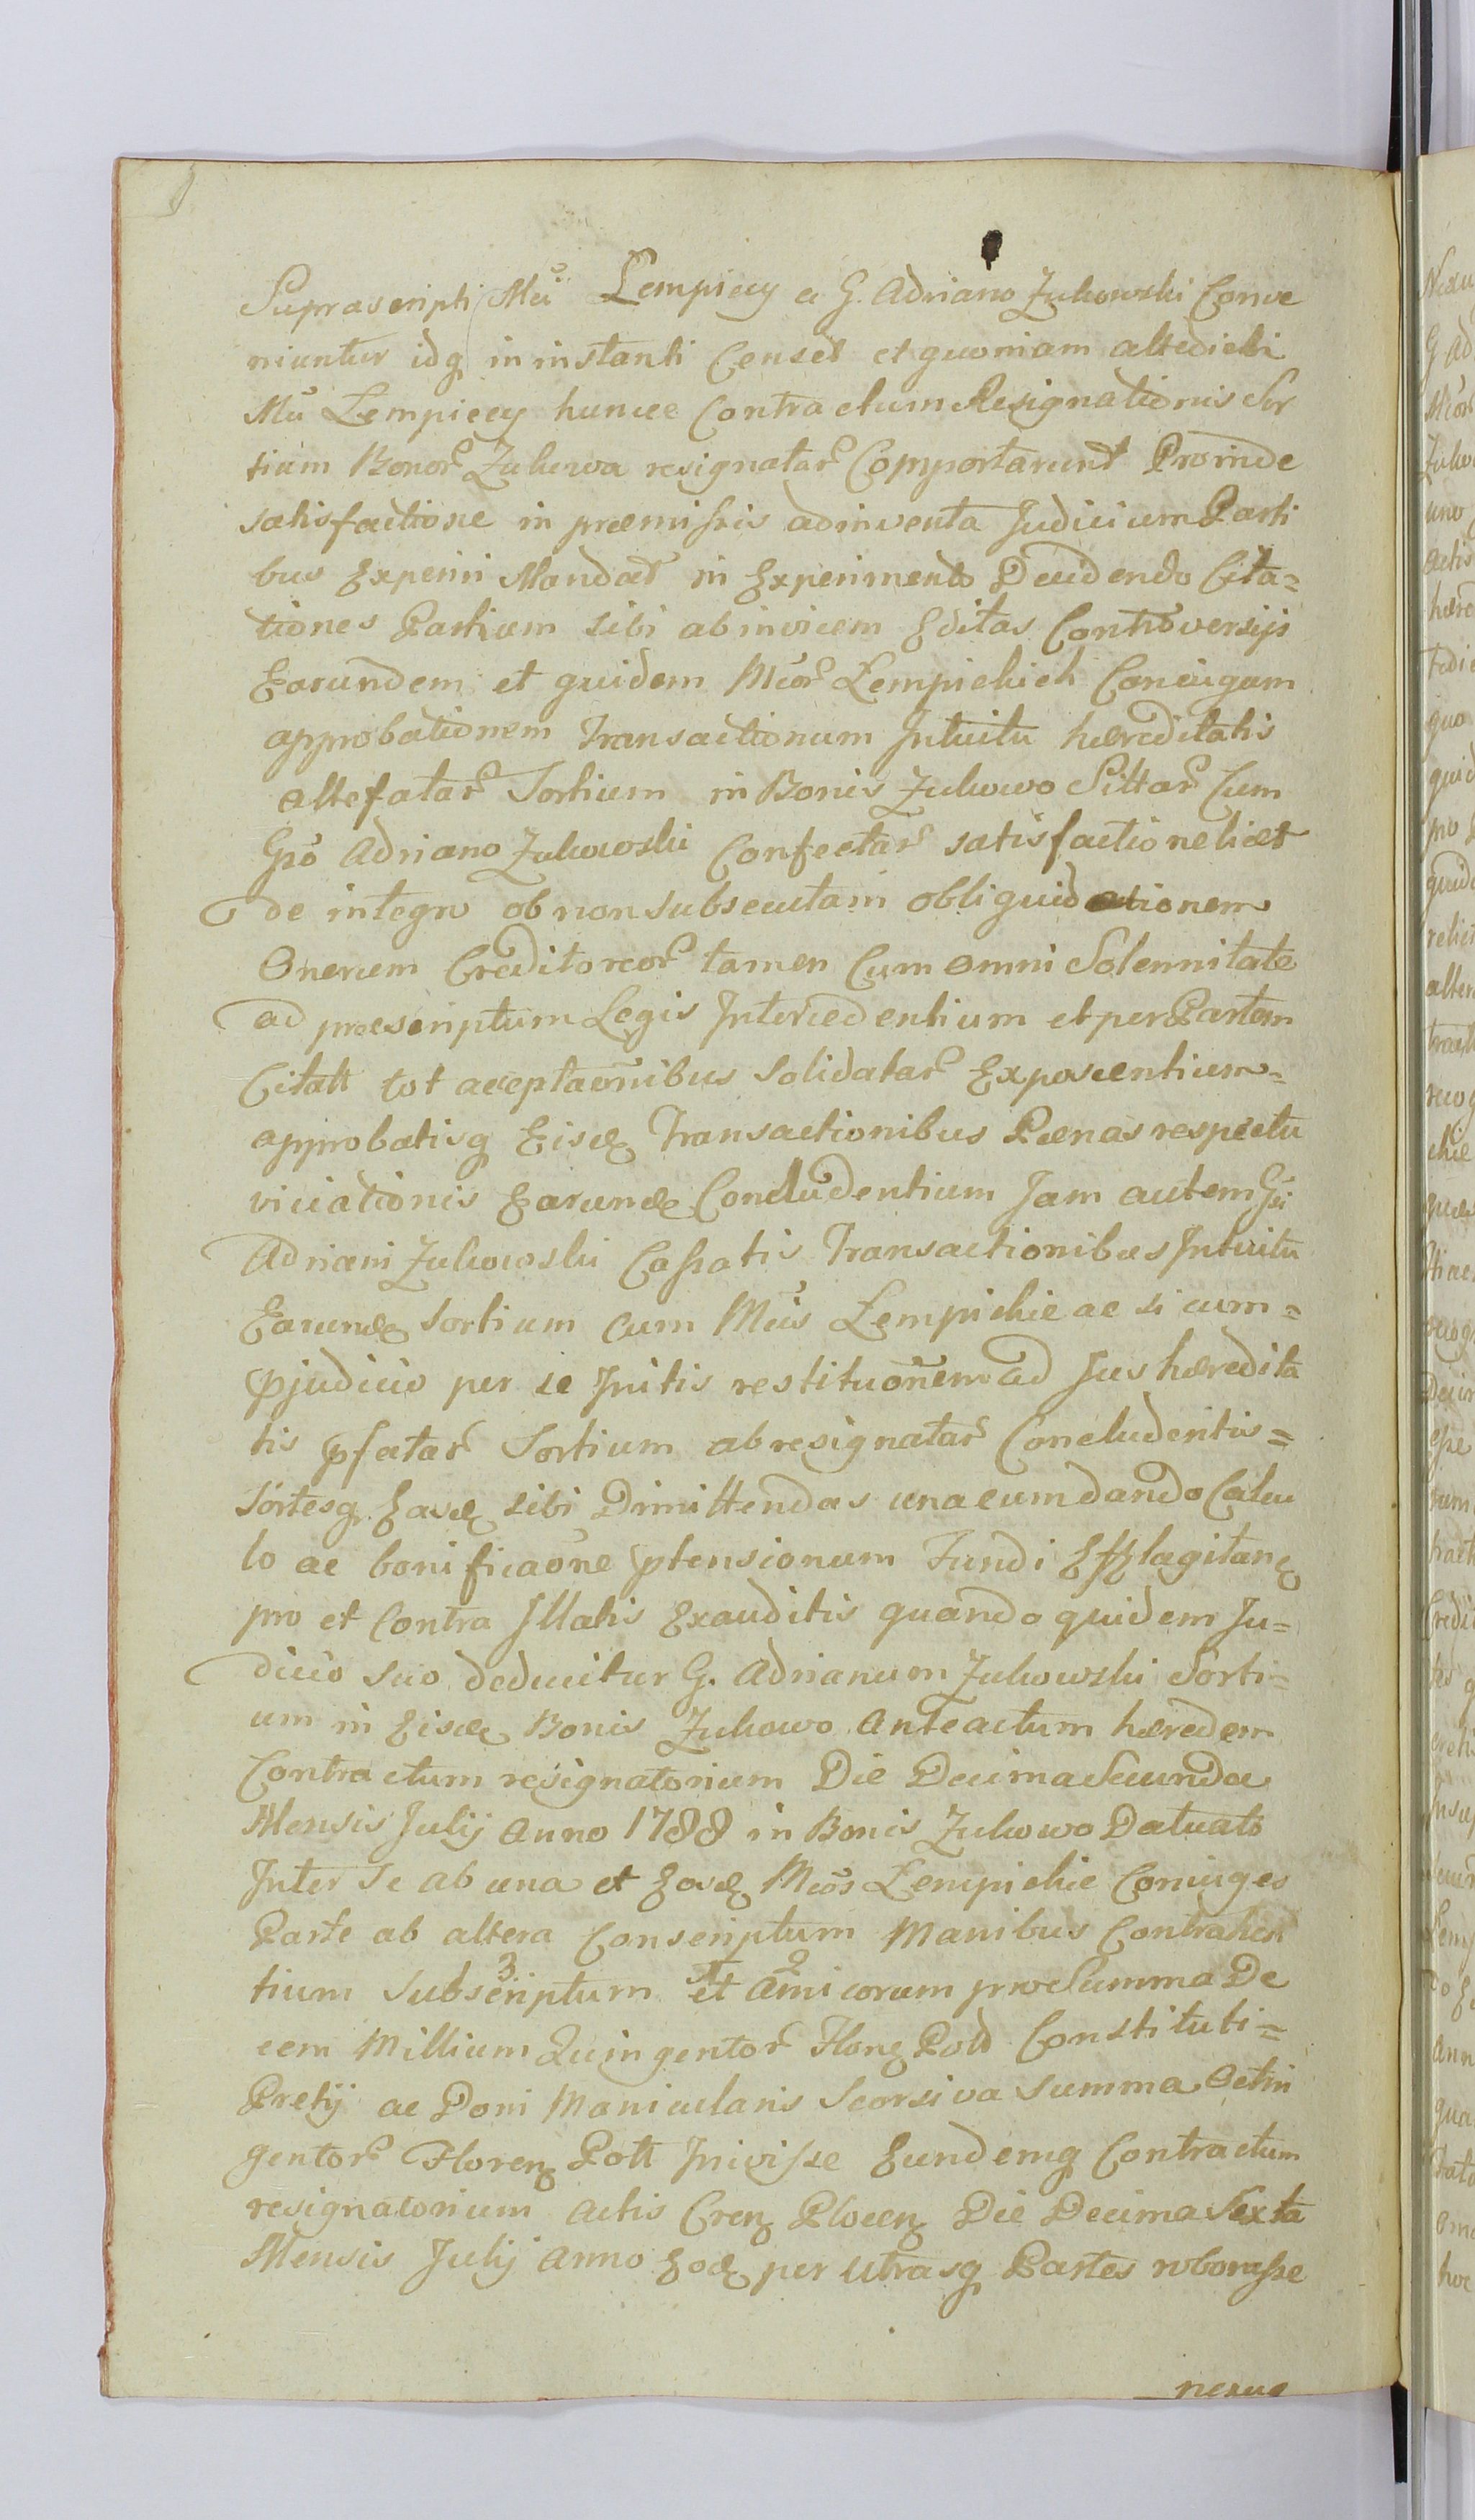 Suprascripti Mci Lempiccy a G. Adriano Zukowski Conve
niuntur idq in instanti Censet et quoniam altedicti
Mci Lempiccy huncce Contractum Resignationis Sor
tium Bonor Zukowa resignatar Comportarunt Proinde
satisfactione in præmissis adinventa Judicium Parti
bus Experiri Mandat in Experimento Decidendo Cita=
tiones Partium sibi abinvicem Editas Controversijs
Earundem et quidem Mcor Lempickich Conjugum
approbationem Transactionum Intuitu hæreditatis
altefatar Sortium in Bonis Zukowo Sittar Cum
Gso Adriano Zukowski Confectar satisfactione licet
de integro ob non subsecutam obliquidationem
Onerum Creditoreor tamen Cum omni Solennitate
ad præscriptum Legis Intercedentium et per Partem
Citatt tot acceptaonibus Solidatar Exposcentium=
approbatisq Eisd Transactionibus Pænas respectu
viciationis Earund Concludentium Jam autem Gsi
Adriani Zukowski Cassatis Transactionibus Intuitu
Earund Sortium cum Mcis Lempickie ac si cum=
pjudicio per se Initis restituonem ad Jus hæredita
tis pfatar Sortium ab resignatar Concludentis=
Sortesq Easd sibi Dimittendas una cum dando Calcu
lo ac bonificaone ptensionum Fundi Efflagitan
pro et Contra Illatis Exauditis quando quidem Ju=
dicio suo deducitur G. Adrianum Zukowski Sorti=
um in Eisd Bonis Zukowo Anteactum hæredem
Contractum resignatorium Die Decima Secunda
Mensis Julij Anno 1788 in Bonis Zukowo Datuato
Inter se ab una et Eosd Mcos Lempickie Coniuges
Parte ab altera Conscriptum Manibus Contrahen
3 1 2
tium Subscriptum et amicorum pro Summa De
cem Millium Quingentor Flor Pold Constituti=
Pretij ac Doni Manicularis Seorsiva Summa Octin
gentor Floren Poll Inivisse Eundemq Contractum
resignatorium Actis Cren Plocen Die Decima Sexta
Mensis Julij Anno Eod per utrasq Partes roborasse
nexus